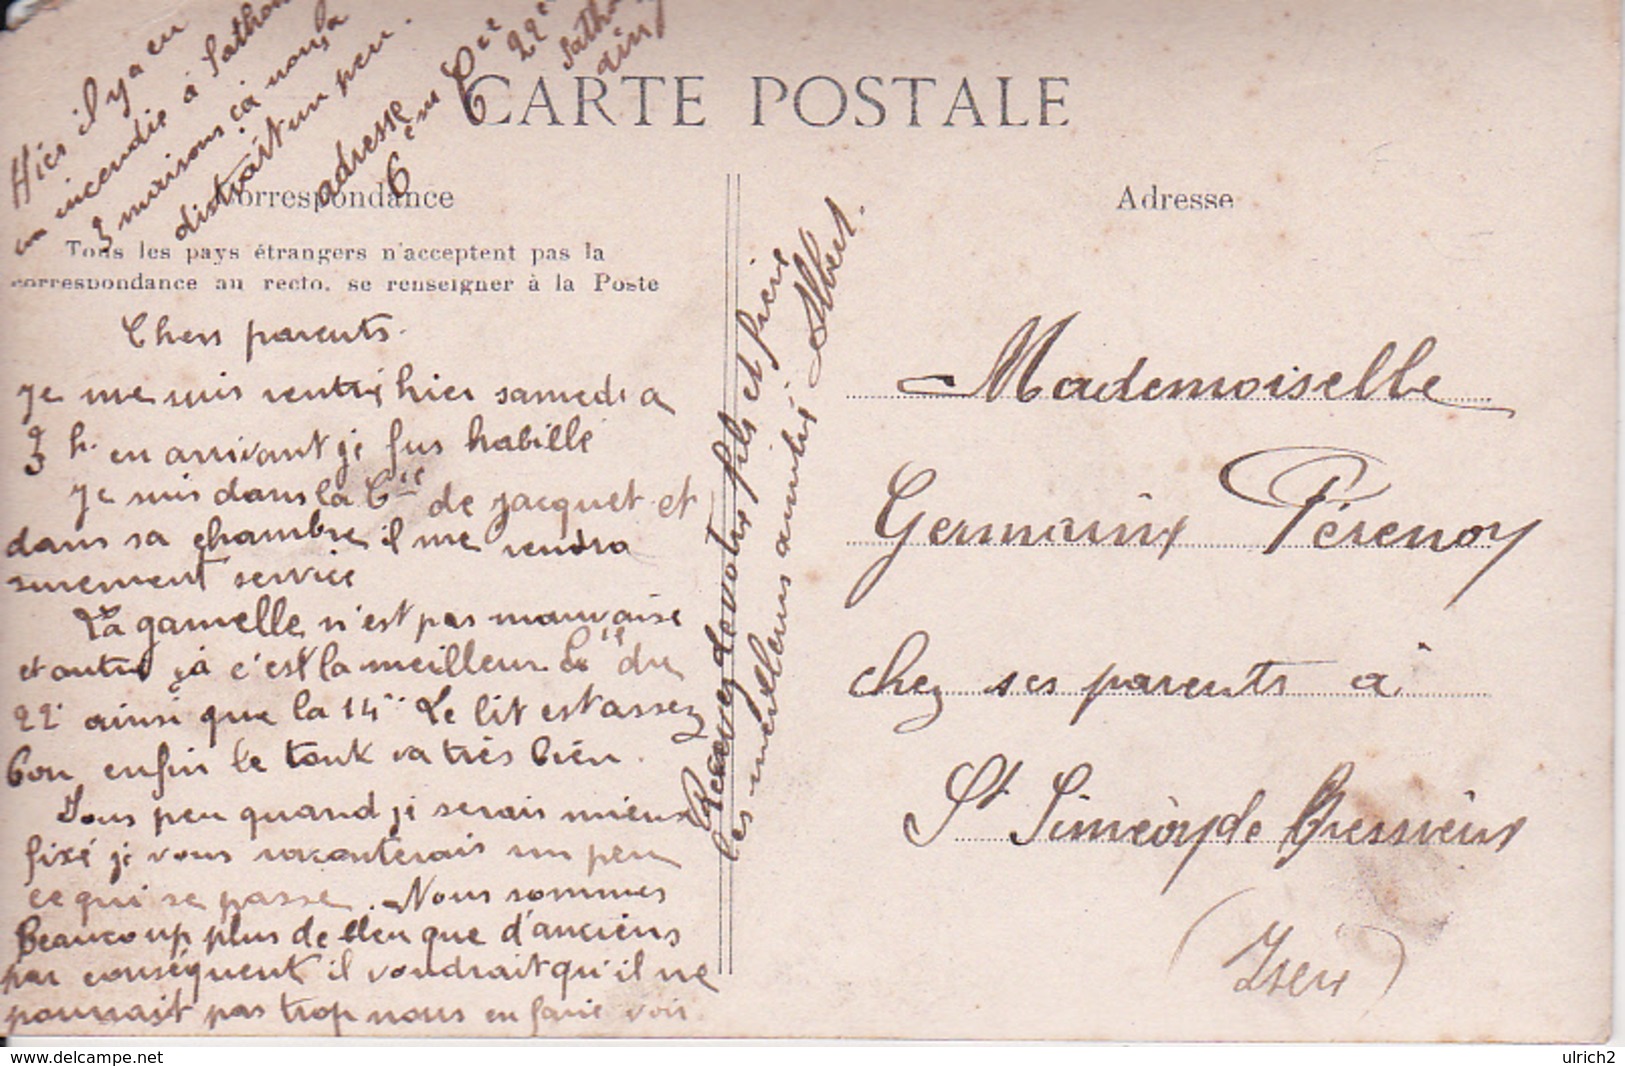 Hier il y a eu
un incendie à Sathon
3 maisons ça nous a
distrait un peu.
adresse
6ème Cie 22e
Satho
Ain
CARTE POSTALE
Correspondance
Adresse
Tous les pays étrangers n'acceptent pas la
correspondance au recto, se renseigner à la Poste
Chers parents.
Je me suis rentré hier samedi a
3 h. en arrivant je fus habillé
Je suis dans la Cie de Jacquet et
dans sa chambre il me rendra
surement service
La gamelle n'est pas mauvaise
et outre ça c'est la meilleur Cie du
22e ainsi que la 14e Le lit est assez
bon enfin le tout va très bien.
Sous peu quand je serais mieux
fixé je vous raconterais un peu
ce qui se passe. Nous sommes
Beaucoup plus de bleu que d'anciens
par conséquent il voudrait qu'il ne
pourrait pas trop nous en faire voir.
Recevez de votre fils et frère
les meilleurs amitié Albert.
Mademoiselle
Germaine Pérenoy
chez ses parents a
St Siméon de Bressieux
(Isère)
delcampe.net
ulrich2